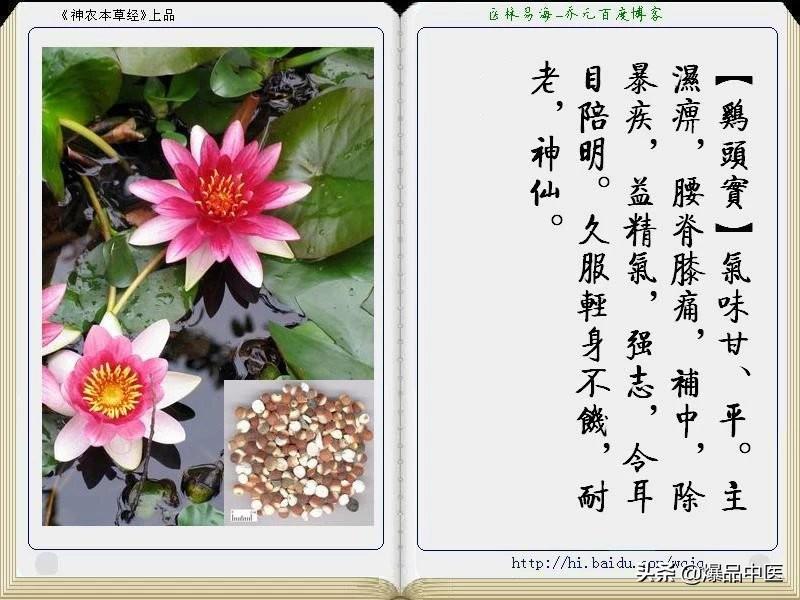 《神农本草经》上品
医林易海_乔元百度博客
【鷄頭實】氣味甘、平。主
濕痹，腰脊膝痛，補中，除
暴疾，益精氣，强志，令耳
目陪明。久服輕身不饑，耐
老，神仙。
http://hi.baidu.com/wqiq
头条 @爆品中医